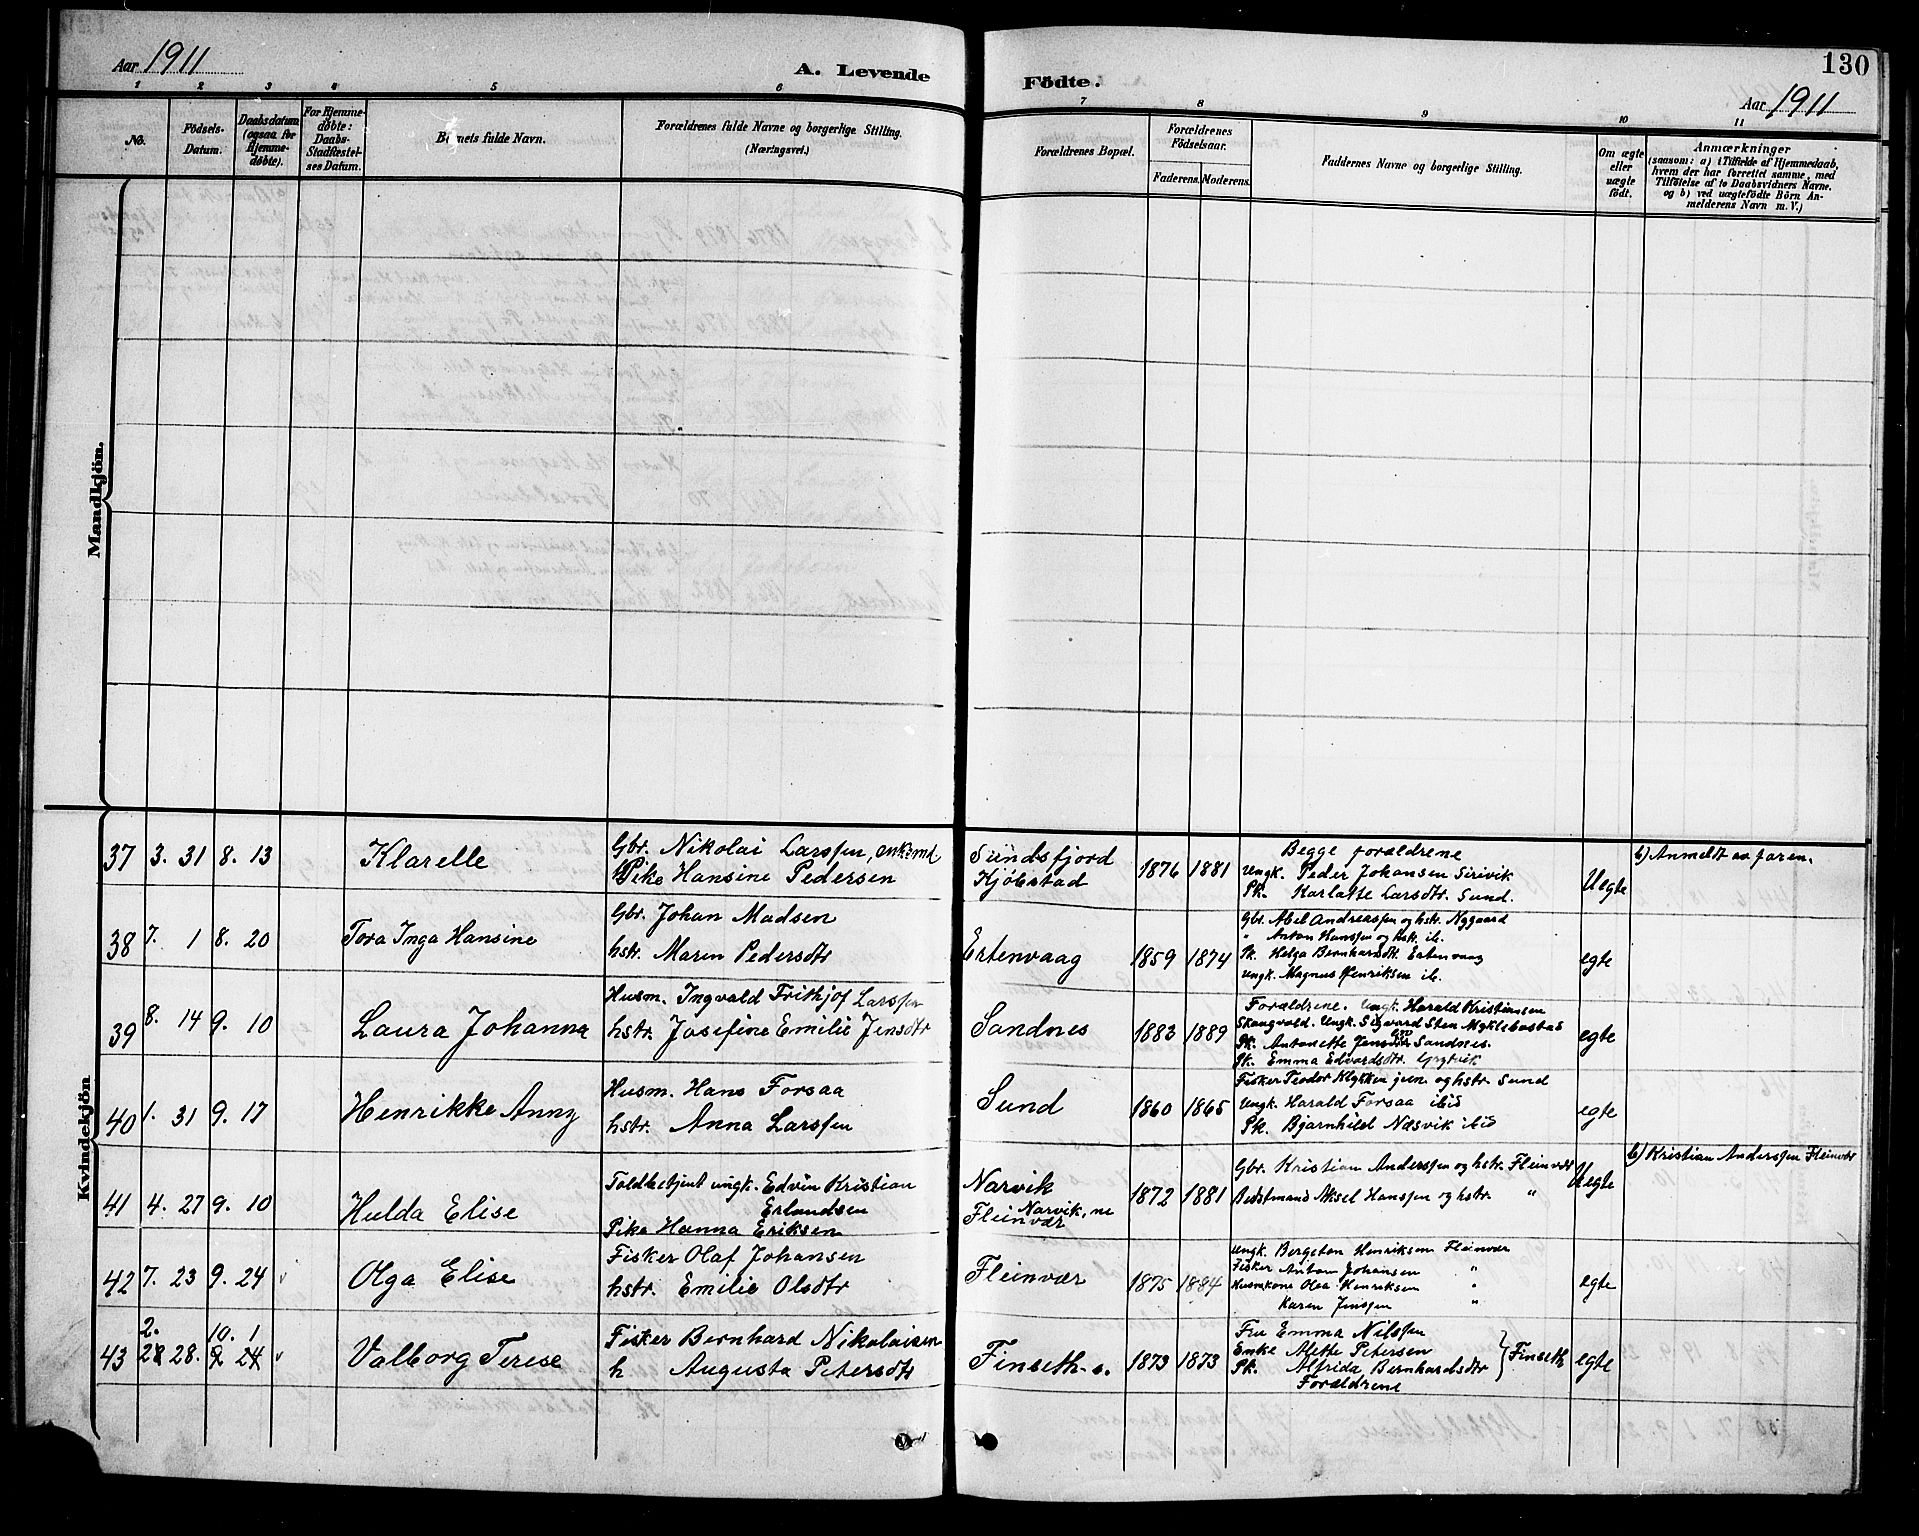 Aar 1911
A. Levende
Födte.
130
Aar 1911
1 2 3 4 5 6 7 8 9 10 11
No.
Födsels-Datum.
Daabsdatum (ogsaa for Hjemmedøbte).
For Hjemmedøbte: Daabs-Stadfæstelses Datum.
Barnets fulde Navn.
Forældrenes fulde Navne og borgerlige Stilling. (Næringsvei.)
Forældrenes Bopæl.
Forældrenes Födselsaar.
Faderens. Moderens.
Faddernes Navne og borgerlige Stilling.
Om ægte eller uægte födt.
Anmærkninger
(saasom: a) i Tilfælde af Hjemmedaab, hvem der har forrettet samme, med Tilföielse af to Daabsvidners Navne, og b) ved uægtefödte Börn Anmelderens Navn m. V.)
Mandkjön.
Kvindekjön
37 3. 31 8. 13 Klarelle
Gbr. Nikolai Larssen, enkemd
Pike Hansine Pedersen
Sundsfjord
Kjøbstad
1876 1881
Begge forældrene
Ungk. Peder Johansen Sirivik
Pk. Karlatte Larsdtr. Sund.
Uegte
b) Anmeldt av faren.
38 7. 1 8. 20 Tora Inga Hansine
Gbr. Johan Madsen
hstr. Maren Pedersdtr
Ertenvaag
1859 1874
Gbr. Abel Andreassen og hstr. Nygaard
" Anton Hanssen og hstr. ib.
Pk. Helga Bernhardsdtr. Ertenvaag
Ungk. Magnus Henriksen ib.
egte
39 8. 14 9. 10 Laura Johanna
Husm. Ingvald Frithjof Larssen
hstr. Josefine Emilie Jensdtr
Sandnes
1883 1889
Forældrene. Ungk. Harald Kristiansen
Skaugvold. Ungk. Sigvard Sten Myklebostad
Pk. Antonette Sandnes.
Pk. Emma Edvardsdtr. Grytvik
egte
40 1. 31 9. 17 Henrikke Anny
Husm. Hans Forsaa
hstr. Anna Larssen
Sund
1860 1865
Fisker Teodor Klykken jun. og hstr. Sund
Ungk. Harald Forsaa ibid
Pk. Bjarnhild Næsvik ibid
egte
41 4. 27 9. 10 Hulda Elise
Toldbetjent ungk. Edvin Kristian
Erlandsen
Pike Hanna Eriksen
Narvik
Narvik, ne
Fleinvær
1872 1881
Gbr. Kristian Anderssen og hstr. Fleinvær
Bedstmand Aksel Hanssen og hstr. "
Uegte
b) Kristian Anderssen Fleinvær
42 7. 23 9. 24 v Olga Elise
Fisker Olaf Johansen
hstr. Emilie Olsdtr
Fleinvær
1875 1884
Ungk. Bergiton Henriksen Fleinvær
Fisker Anton Johansen "
Husmkone Olea Henriksen "
Karen Jenssen "
egte
43 2. 28. 10. 1 9 24 v Valborg Terese
Fisker Bernhard Nikolaisen
h Augusta Petersdtr
Finseth-s.
1873 1873
Fru Emma Nilssen
Enke Alette Petersen
Pk. Alfrida Bernhardsdtr
Forældrene
} Finseth
egte